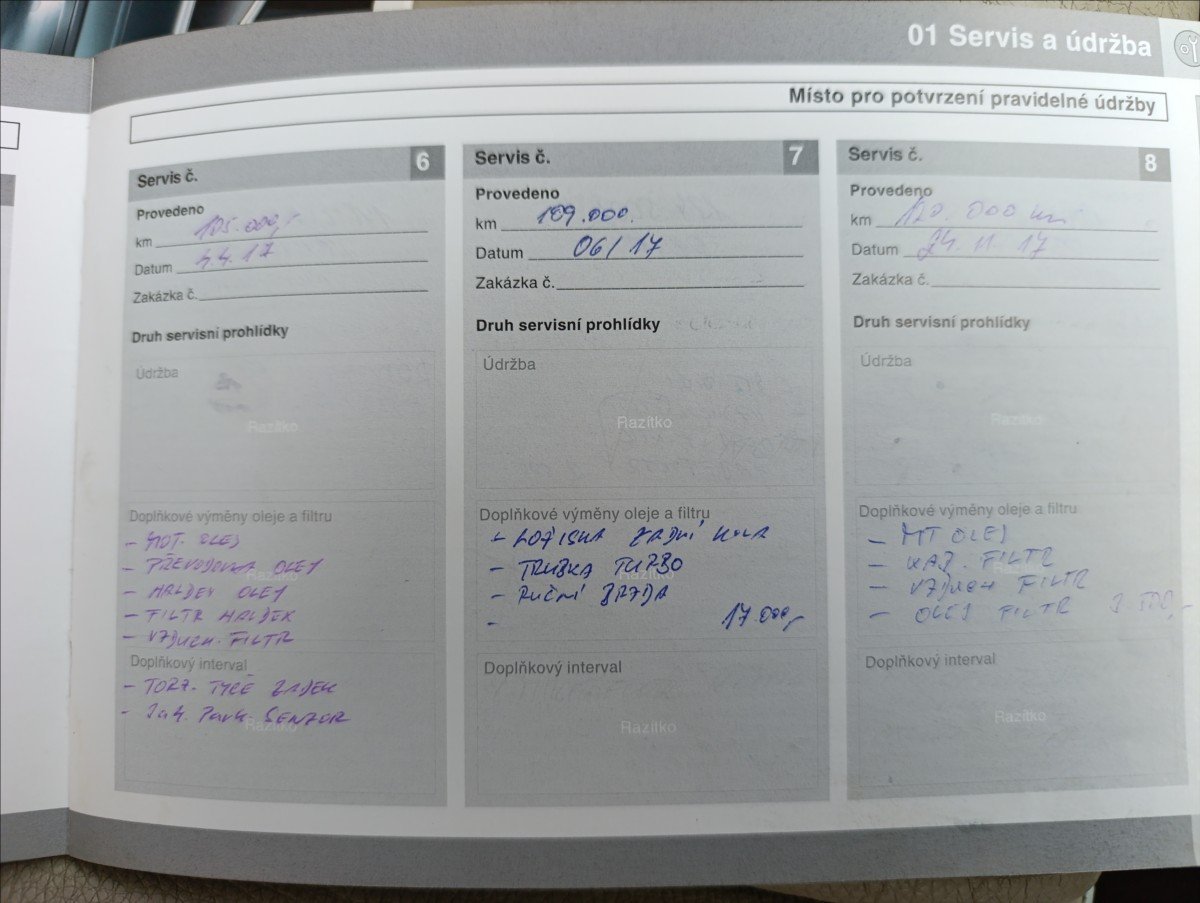 01 Servis a údržba
Místo pro potvrzení pravidelné údržby
Servis č. 6
Provedeno
km 105.000,-
Datum 4.4.17
Zakázka č.
Druh servisní prohlídky
Údržba
Razítko
Doplňkové výměny oleje a filtru
- MOT. OLEJ
- PŘEVODOVKA OLEJ
- HALDEX OLEJ
- FILTR HALDEX
- VZDUCH. FILTR
Razítko
Doplňkový interval
- TORZ. TYČE ZADEK
- Park. SENZOR
Razítko
Servis č. 7
Provedeno
km 109.000.
Datum 06/17
Zakázka č.
Druh servisní prohlídky
Údržba
Razítko
Doplňkové výměny oleje a filtru
- LOŽISKA ZADNÍ KOLA
- TRUBKA TURBO
- RUČNÍ BRZDA
- 17.000,-
Razítko
Doplňkový interval
Razítko
Servis č. 8
Provedeno
km 120.000 km
Datum 24.11.17
Zakázka č.
Druh servisní prohlídky
Údržba
Razítko
Doplňkové výměny oleje a filtru
- MT OLEJ
- KAB. FILTR
- VZDUCH FILTR
- OLEJ FILTR
Doplňkový interval
Razítko